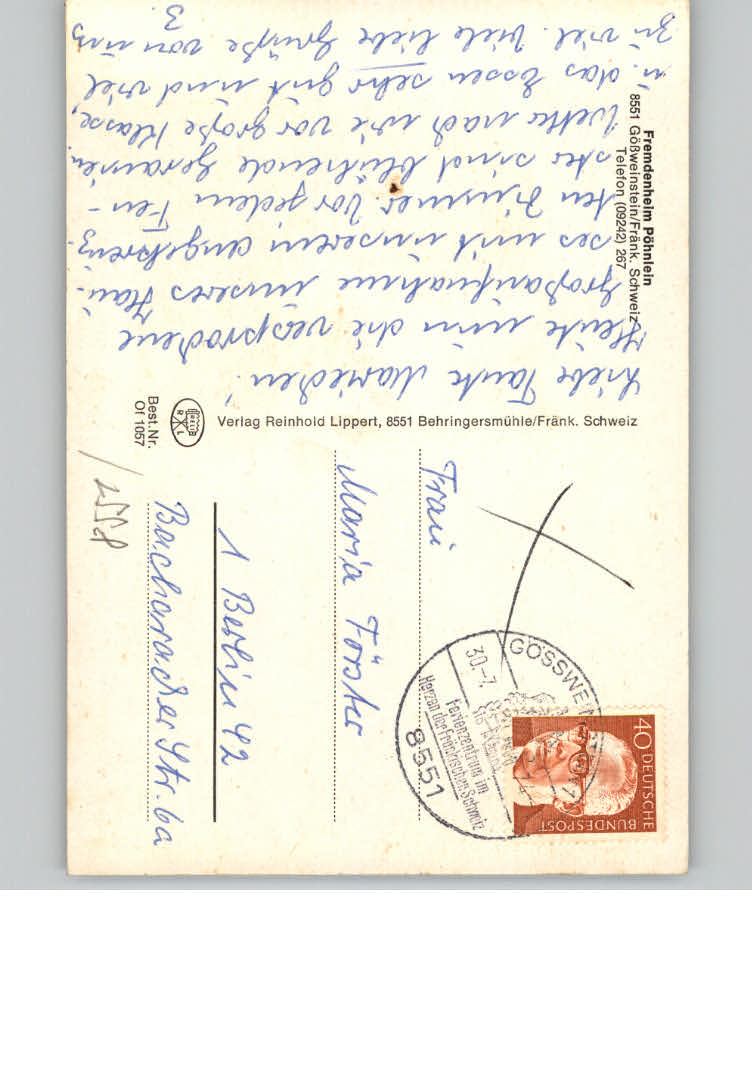 Fremdenheim Pöhnlein
8551 Gößweinstein/Fränk. Schweiz
Telefon (09242) 267
Liebe Tante Mariechen!
Heute nun die versprochene
Großaufnahme unseres Hau-
ses mit unserem angekreuz-
ten Zimmer. Vor jedem Fen-
ster sind blühende Geranien.
Wetter nach wie vor große Klasse,
u. das Essen sehr gut und viel
zu viel. Viele liebe Grüße von uns
3.
Verlag Reinhold Lippert, 8551 Behringersmühle/Fränk. Schweiz
RELIB
R L
Best.Nr.
Of 1057
Frau
Maria Förster
1 Berlin 42
Bacharacher Str. 6a
/2558
GÖSSWEINSTEIN
30.-7.
Ferienzentrum im
Herzen der Fränkischen Schweiz
8551
40 DEUTSCHE
BUNDESPOST